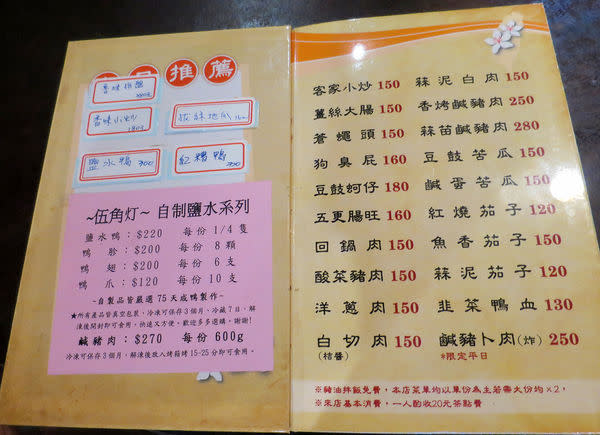 推薦
香味拼盤
香味小炒
180
拔絲地瓜
鹽水鴨 300
紅糟鴨 300
~伍角灯~ 自制鹽水系列
鹽水鴨：$220 每份 1/4 隻
鴨胗：$200 每份 8 顆
鴨翅：$200 每份 6 支
鴨爪：$120 每份 10 支
~自製品皆嚴選 75 天成鴨製作~
★所有產品皆真空包裝，冷凍可保存3個月、冷藏7日、解
凍後開封即可食用，快速又方便。歡迎多多選購，謝謝!
鹹豬肉：$270 每份 600g
冷凍可保存3個月，解凍後放入烤箱烤15-25分即可食用。
客家小炒 150
薑絲大腸 150
蒼蠅頭 150
狗臭屁 160
豆鼓蚵仔 180
五更腸旺 160
回鍋肉 150
酸菜豬肉 150
洋蔥肉 150
白切肉 150
(桔醬)
蒜泥白肉 150
香烤鹹豬肉 250
蒜苗鹹豬肉 280
豆鼓苦瓜 150
鹹蛋苦瓜 150
紅燒茄子 120
魚香茄子 120
蒜泥茄子 120
韮菜鴨血 130
鹹豬卜肉(炸) 250
*限定平日
※豬油拌飯免費，本店菜單均以單份為主若需大份均×2，
※來店基本消費，一人酌收20元茶點費